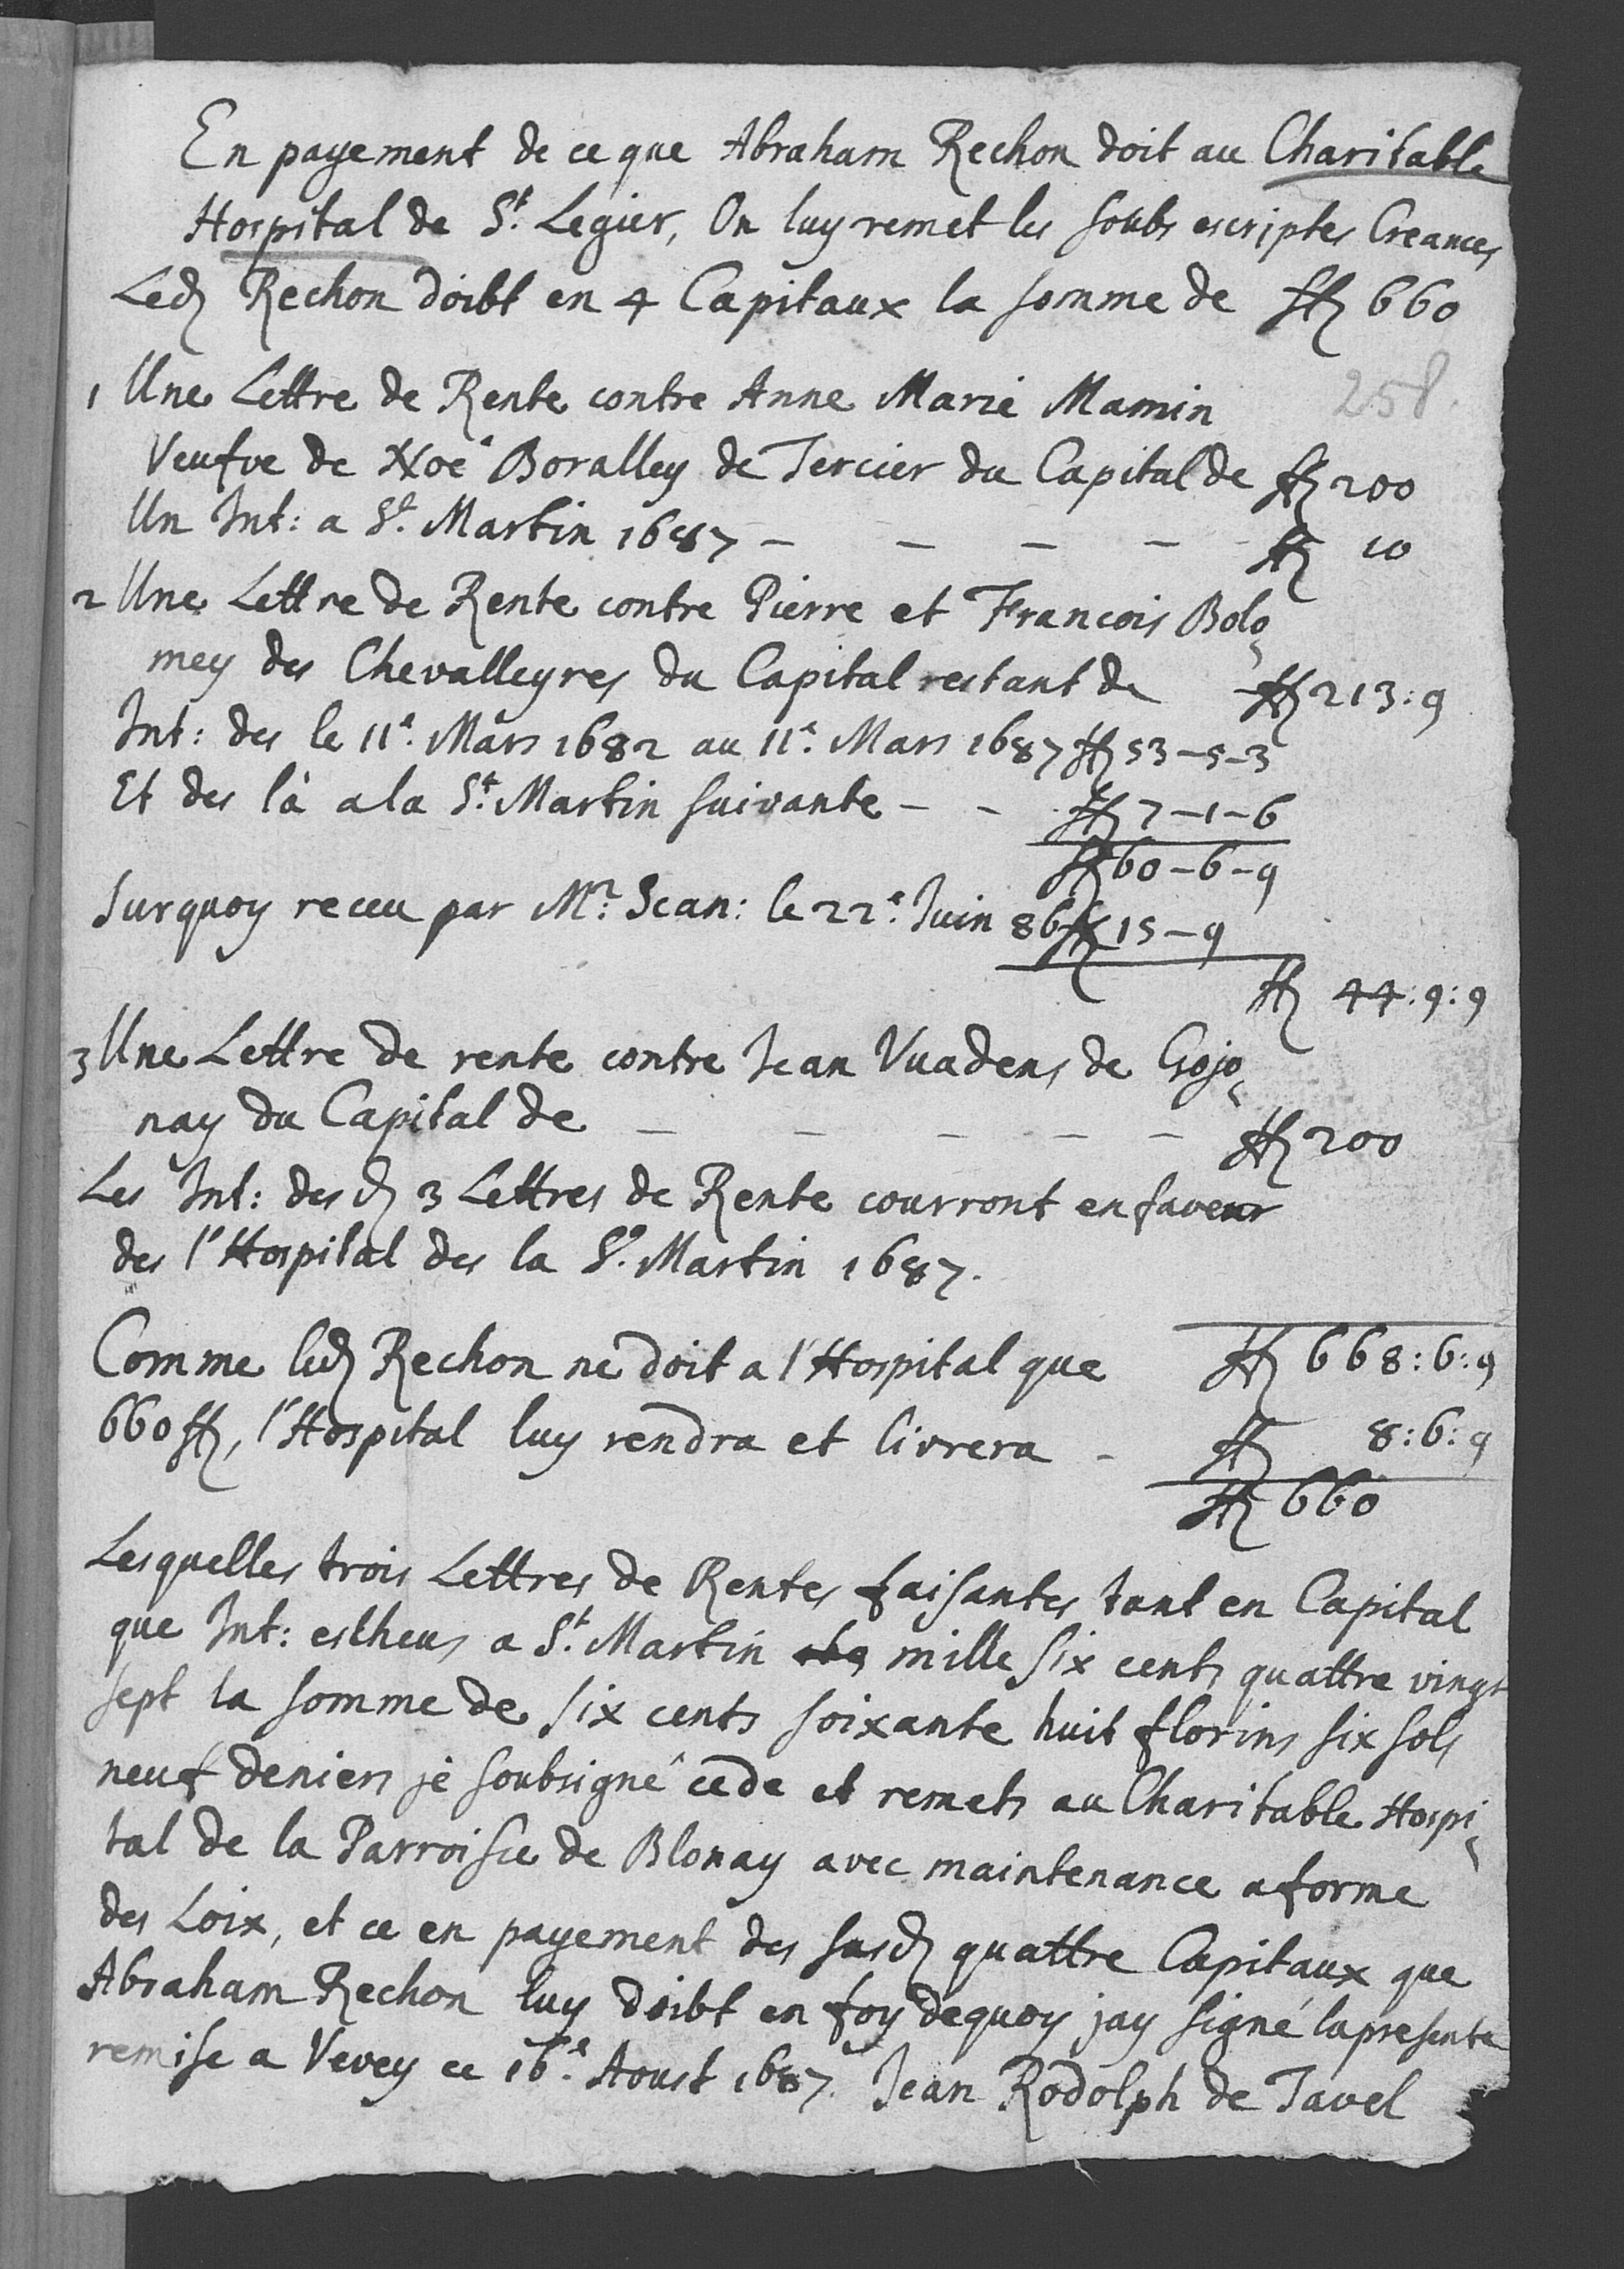 En payement de ce que Abraham Rechon doit au Charitable
Hospital de St. Legier, On luy remet les soubs escriptes Creances
Led. Rechon doibt en 4 Capitaux la somme de ff 660
258.
1 Une Lettre de Rente contre Anne Marie Mamin
Veufve de Noé Boralley de Tercier du Capital de ff 200
Un Int: a St. Martin 1687 - - - - ff 10
2 Une Lettre de Rente contre Pierre et Francois Bolo
mey des Chevalleyres du Capital restant de ff 213:9
Int: des le 11e. Mars 1682 au 11e. Mars 1687 ff 53-5-3
Et des là a la St. Martin suivante - - ff 7-1-6
ff 60-6-9
Surquoy receu par Mr. Scan: le 22e. Juin 86 ff 15-9
ff 44:9:9
3 Une Lettre de rente contre Jean Vuadens de Gojo
nay du Capital de - - - - - ff 200
Les Int: des d. 3 Lettres de Rente courront en faveur
des l'Hospital des la St. Martin 1687.
Comme led. Rechon ne doit a l'Hospital que ff 668:6:9
660 ff, l'Hospital luy rendra et livrera - ff 8:6:9
ff 660
Lesquelles trois Lettres de Rentes faisantes tant en Capital
que Int: estheus a St. Martin mille six cents quattre vingt
sept la somme de six cents soixante huit florins six sols
neuf deniers je soubsigné cede et remets au Charitable Hospi
tal de la Parroisce de Blonay avec maintenance a forme
des Loix, et ce en payement des susd. quattre Capitaux que
Abraham Rechon luy doibt en foy dequoy jay signé la presente
remise a Vevey ce 16e. Aoust 1687. Jean Rodolph de Tavel